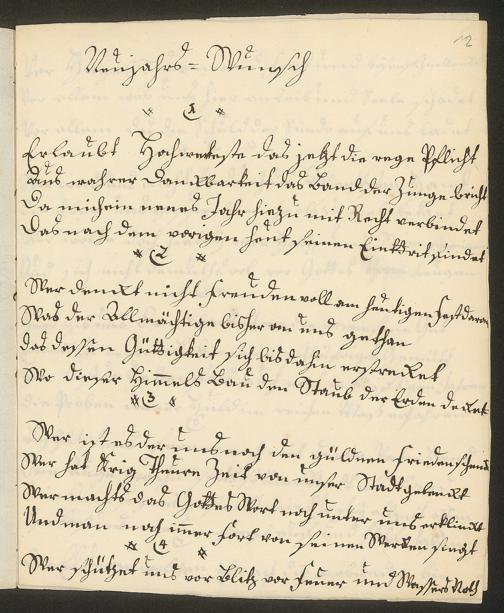 12
Neujahrs=Wunsch
* (1 *
Erlaubt Hochwerteste das jetzt die rege Pflicht
Aus wahrer Danckbarkeit das Band der Zunge bricht
Da mich ein neues Jahr hiezu mit Recht verbindet
Das nach dem vorigen heut seinen Eintritt findet
* (2 *
Wer denckt nicht freuden voll am heutigen fest daran
Was der Allmächtige bisher an uns gethan
das dessen Güttigkeit sich bis dahin erstrecket
Wo dieser Himmels Bau den Staub der Erden decket
* (3 *
Wer ist es der uns noch den güldnen frieden schenckt
Wer hat Krig Theure Zeit von unser Stadt gelenckt
Wer machts das Gottes Wort noch unter uns erklinckt
Und man noch im̄er fort von seinen Wercken singt
* (4 *
Wer schützet uns vor Blitz vor feuer und Wassers Noth